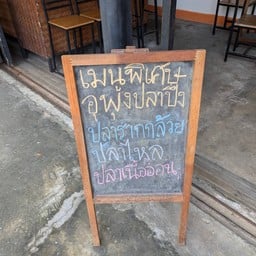 เมนูพิเศษ
อุพุงปลาบึก
ปลารากกล้วย
ปลาไหล
ปลาเนื้ออ่อน